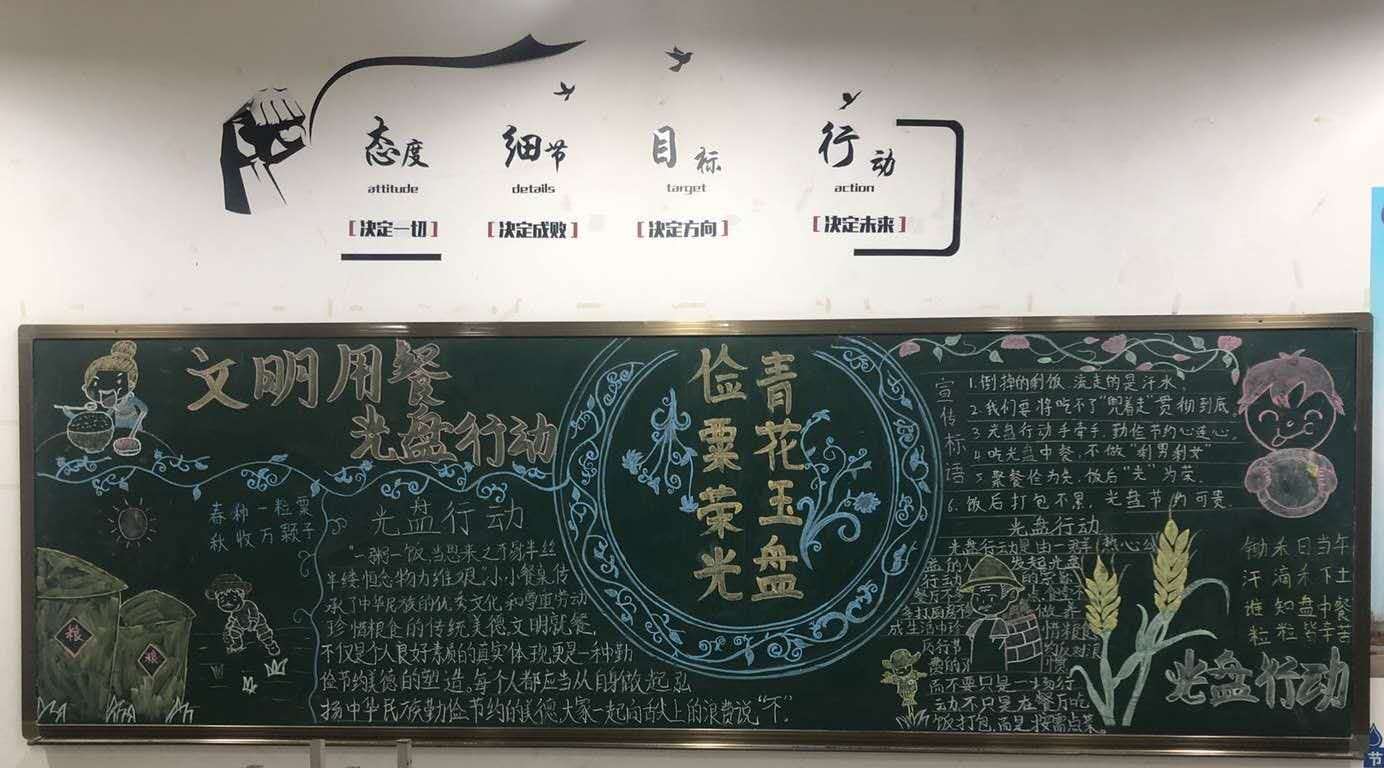 态度
attitude
[决定一切]
细节
details
[决定成败]
目标
target
[决定方向]
行动
action
[决定未来]
文明用餐
光盘行动
春种一粒粟
秋收万颗子
粮
粮
光盘行动
"一粥一饭,当思来之不易,半丝
半缕恒念物力维艰"小小餐桌传
承了中华民族的优秀文化和尊重劳动
珍惜粮食的传统美德.文明就餐,
不仅是个人良好素质的真实体现,更是一种勤
俭节约美德的塑造。每个人都应当从自身做起弘
扬中华民族勤俭节约的美德大家一起向舌尖上的浪费说"不"。
青花玉盘
俭粟荣光
宣传标语
1.倒掉的剩饭,流走的是汗水。
2.我们要将吃不了"兜着走"贯彻到底。
3.光盘行动手牵手,勤俭节约心连心。
4.吃光盘中餐,不做"剩男剩女"
5.聚餐俭为先,饭后"光"为荣.
6.饭后打包不累,光盘节约可贵.
光盘行动
光盘行动是由一群热心公
益的人 发起光盘
行动
成生活中珍 惜粮食
而不要只是一场行
动不只是在餐厅吃
饭打包,而是按需点菜。
锄禾日当午
汗滴禾下土
谁知盘中餐
粒粒皆辛苦
光盘行动
节